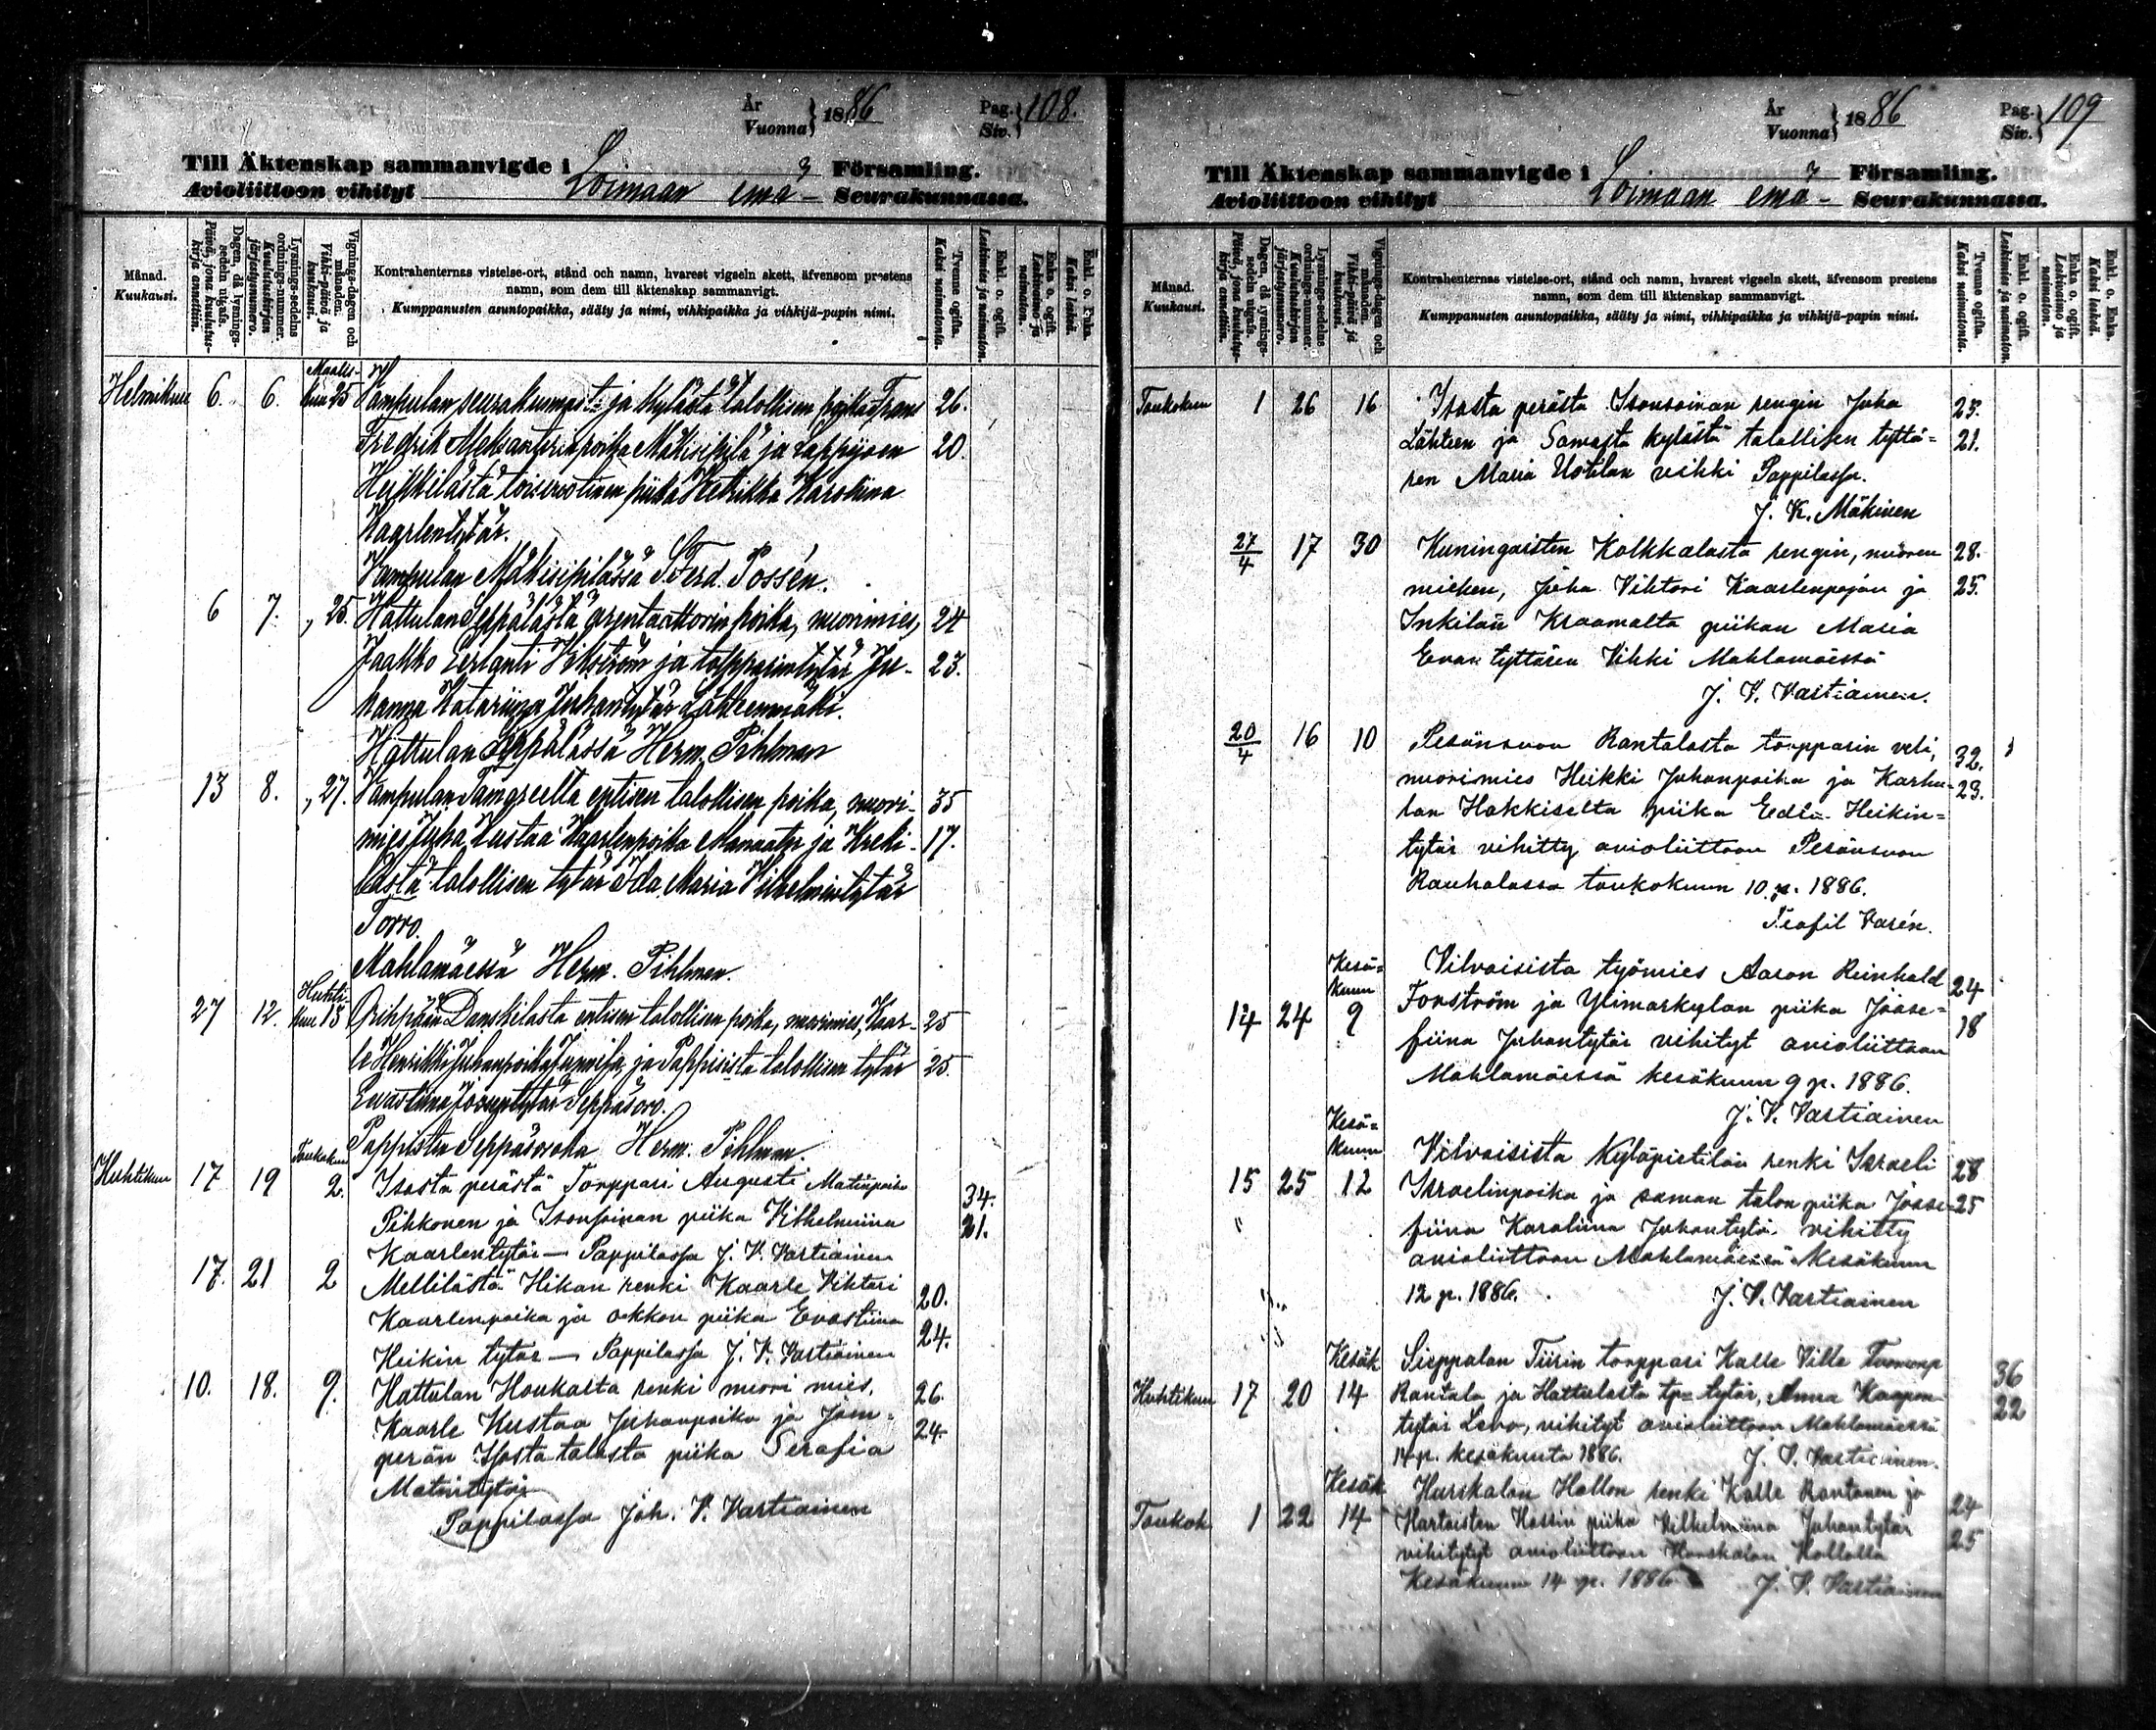 År
Vuonna } 1886
Pag.
Siv. } 108.
Till Äktenskap sammanvigde i Loimaan emä- Församling.
Avioliittoon vihityt Seurakunnassa.
Månad.
Kuukausi.
Dagen, då lysnings-sedeln utgafs.
Päivä, jona kuulutus-kirja annettiin.
Lysnings-sedelns ordnings-nummer.
Kuulutuskirjan järjestysnumero.
Vignings-dagen och månaden.
Vihki-päivä ja kuukausi.
Kontrahenternas vistelse-ort, stånd och namn, hvarest vigseln skett, äfvensom prestens
namn, som dem till äktenskap sammanvigt.
Kumppanusten asuntopaikka, sääty ja nimi, vihkipaikka ja vihkijä-papin nimi.
Tvenne ogifta.
Kaksi naimatonta.
Enkl. o. ogift.
Leskimies ja naimaton.
Enka o. ogift.
Leskivaimo ja naimaton.
Enkl. o. Enka.
Kaksi leskeä.
Maalis-
Helmikuu 6. 6. kuu 25 Vampulan seurakunnasta ja kylästä talollisen poika Frans 26.
Fredrik Aleksanterinpoika Mäkisipilä ja Lappijoen 20.
Heikkilästä piika Hedrikka Karoliina
Kaarlentytär.
Vampulan Mäkisipilässä S. Ferd. Possén.
6 7. „ 25. Hattulan Seppälästä arentaattorin poika, nuorimies, 24
Jaakko Eerlanti Vikström ja torpparintytär Jo- 23.
hanna Katariina Juhantytär Lähteenmäki.
Hattulan Seppälässä Herm. Pihlman
13 8. „ 27. Vampulan entisen talollisen poika, nuori- 35
mies Juha Kustaa Kaarlenpoika ja Kreki- 17.
lästä talollisen tytär Ida Maria Vilhelmintytär
Torro.
Mahlamäessä Herm. Pihlman.
Huhti-
27 12. kuu 13 Oripään Danskilasta entisen talollisen poika, nuorimies, Kaar- 25
le Henrikki Juhanpoika ja Pappisista talollisen tytär 25.
Evastiina Seppäsoro.
Pappisten Herm. Pihlman.
Toukokuu
Huhtikuu 17 19 2. Isosta perästä Torppari Augusti Matinpoika 34.
Pihkonen ja Isonsoinan piika Vilhelmiina 21.
Kaarlentytär — Pappilassa J. V. Vartiainen
17. 21 2 Mellilästä Hikan renki Kaarle Viktori 20.
Kaarlenpoika ja piika Evastiina 24.
Heikin tytär — Pappilassa J. V. Vartiainen
10. 18. 9. Hattulan Houkasta renki nuori mies, 26.
Kaarle Kustaa Juhanpoika ja Jom- 24.
perän piika Serafia
Matintytär
Pappilassa Joh. V. Vartiainen
År
Vuonna } 1886
Pag.
Siv. } 109
Till Äktenskap sammanvigde i Loimaan emä- Församling.
Avioliittoon vihityt Seurakunnassa.
Månad.
Kuukausi.
Dagen, då lysnings-sedeln utgafs.
Päivä, jona kuulutus-kirja annettiin.
Lysnings-sedelns ordnings-nummer.
Kuulutuskirjan järjestysnumero.
Vignings-dagen och månaden.
Vihki-päivä ja kuukausi.
Kontrahenternas vistelse-ort, stånd och namn, hvarest vigseln skett, äfvensom prestens
namn, som dem till äktenskap sammanvigt.
Kumppanusten asuntopaikka, sääty ja nimi, vihkipaikka ja vihkijä-papin nimi.
Tvenne ogifta.
Kaksi naimatonta.
Enkl. o. ogift.
Leskimies ja naimaton.
Enka o. ogift.
Leskivaimo ja naimaton.
Enkl. o. Enka.
Kaksi leskeä.
Toukokuu 1 26 16 Isosta perästä Isonsoinan rengin Juha 23.
Lähteen ja Samasta kylästä talollisen tyttä= 21.
ren Maria Uotilan vihki Pappilassa.
J. K. Mäkinen
27/4 17 30 Kuningoisten Kolkkalasta rengin, nuoren 28.
miehen, Juha Vihtori Kaarlenpojan ja 25.
Inkilän Kraamalta piikan Maria
Evan tyttären Vihki Mahlamäessä
J. V. Vartiainen.
20/4 16 10 Pesänsuon Rantalasta torpparin veli, 32.
nuorimies Heikki Juhanpoika ja Karhu- 23.
lan Hakkiselta piika Edla Heikin=
tytär vihitty avioliittoon Pesänsuon
Rauhalassa toukokuun 10 p. 1886.
Teofil Varén.
Kesä=
kuun
Vilvaisista työmies Aaron Reinhold 24
14 24 9 Forström ja Ylimarkylan piika Joose= 18
fiina Juhantytär vihityt avioliittoon
Mahlamäessä kesäkuun 9 p. 1886.
J. V. Vartiainen
Kesä=
kuun
Vilvaisista Kyläpietilän renki Israeli 28
15 25 12 Israelinpoika ja saman talon piika Joose- 25
fiina Karoliina Juhantytär vihitty
avioliittoon Mahlamäessä Kesäkuun
12 p. 1886. J. V. Vartiainen
Kesäk. Sieppalan Tiirin torppari Kalle Ville Tuomonp 36
Huhtikuu 17 20 14 Rantala ja Hattulasta tp= tytär, Anna Kaapon- 22
tytär Levo, vihityt avioliittoon Mahlamäessä
14 p. kesäkuuta 1886. J. V. Vartiainen.
Kesäk. Hurskalan Hollon renki Kalle Rantanen ja 24
Toukok. 1 22 14 Hartoisten piika Vilhelmiina Juhantytär 25
vihityt avioliittoon Hurskalan Hollolla
Kesäkuun 14 p. 1886 J. V. Vartiainen